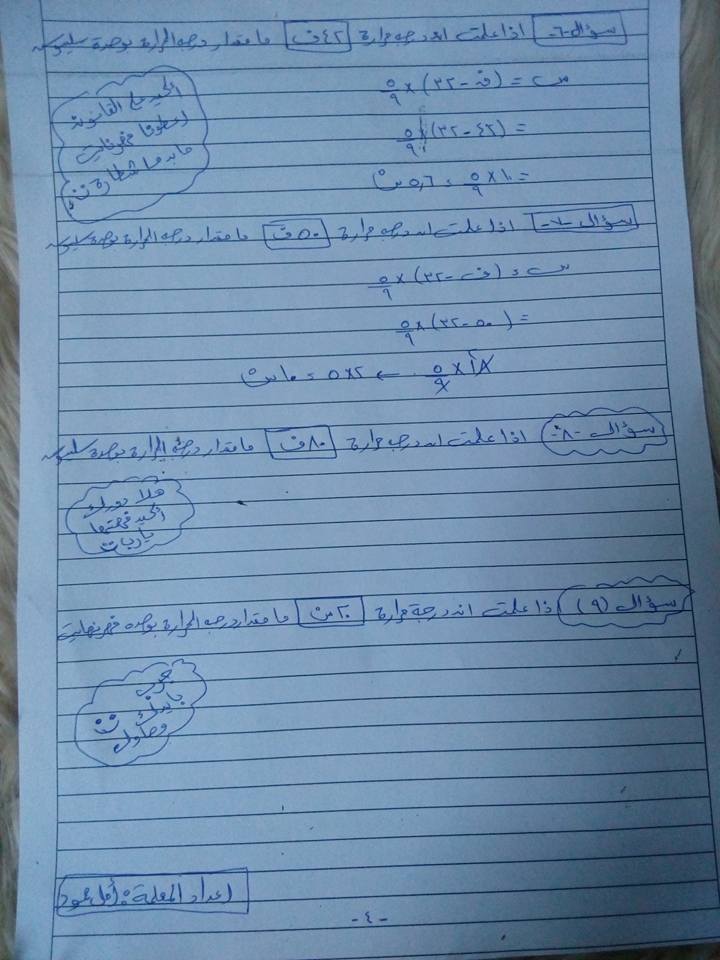 سؤال -٦- اذا علمت ان درجه حرارة ٤٢ف ما مقدار درجه الحرارة بوحدة سليوس
س = (ف - ٣٢) × ٥/٩
= (٤٢ - ٣٢) × ٥/٩
= ١٠ × ٥/٩ = ٥,٦ س
القانون
سؤال -٧- اذا علمت ان درجه حرارة ٥٠ف ما مقدار درجه الحرارة بوحدة سليوس
س = (ف - ٣٢) × ٥/٩
= (٥٠ - ٣٢) × ٥/٩
١٨ × ٥/٩ ← ٢ × ٥ = ١٠ س
سؤال -٨- اذا علمت ان درجه حرارة ٨٠ف ما مقدار درجه الحرارة بوحدة سليوس
هلا دورك
أكيد فهمتها
يا بنات
سؤال (٩) اذا علمت ان درجة حرارة ٢٠س ما مقدار درجه الحرارة بوحده فهرنهايت
جرب
وحاول
اعداد المعلمة : أمل
-٤-